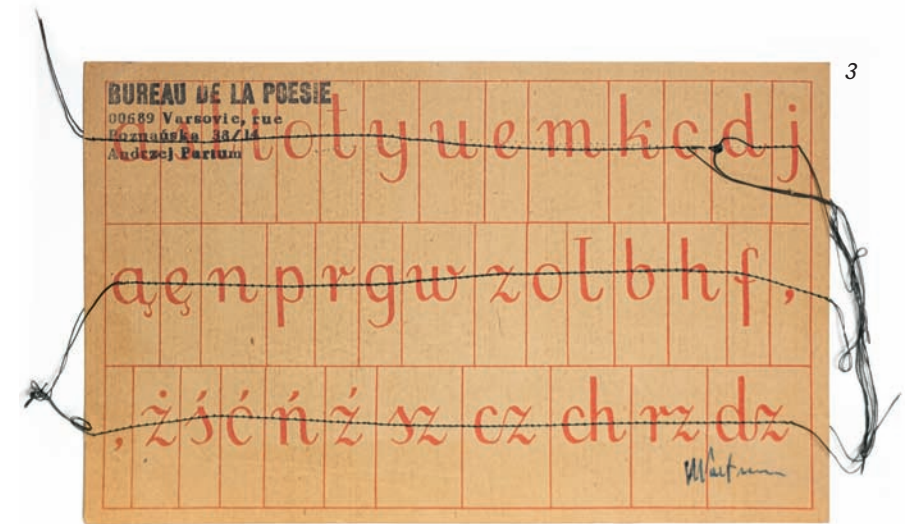 3
BUREAU DE LA POESIE
00689 Varsovie, rue
Poznańska 38/14
Andrzej Partum
o t y u e m k c d j
ą ę n p r g w z o ł b h f ,
, ż ś ć ń ź sz cz ch rz dz